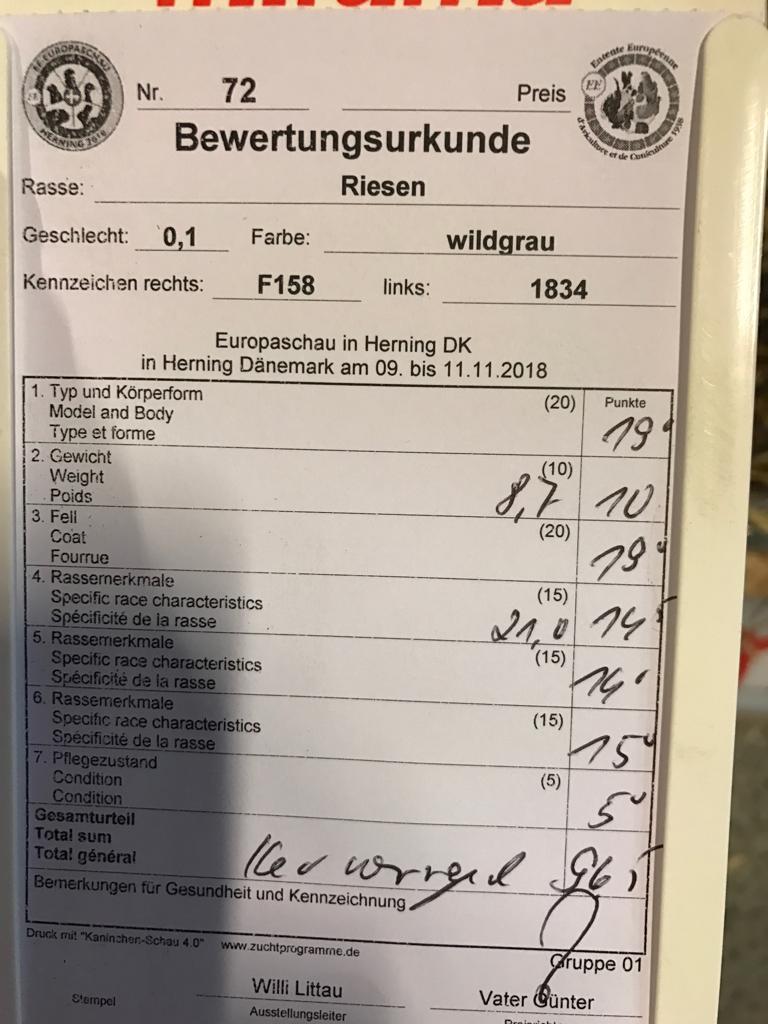 EE EUROPASCHAU
HERNING 2018
Entente Européenne
EE
d'Aviculture et de Cuniculture 1938
Nr. 72 Preis
Bewertungsurkunde
Rasse: Riesen
Geschlecht: 0,1 Farbe: wildgrau
Kennzeichen rechts: F158 links: 1834
Europaschau in Herning DK
in Herning Dänemark am 09. bis 11.11.2018
1. Typ und Körperform (20) Punkte
Model and Body
Type et forme 19
2. Gewicht (10)
Weight
Poids 8,7 10
3. Fell (20)
Coat
Fourrue 19
4. Rassemerkmale (15)
Specific race characteristics
Spécificité de la rasse 21,0 14
5. Rassemerkmale (15)
Specific race characteristics
Spécificité de la rasse 14
6. Rassemerkmale (15)
Specific race characteristics
Spécificité de la rasse 15
7. Pflegezustand (5)
Condition
Condition 5
Gesamturteil
Total sum
Total général hervorragend 96
Bemerkungen für Gesundheit und Kennzeichnung
Druck mit "Kaninchen-Schau 4.0" www.zuchtprogramme.de
Gruppe 01
Willi Littau Vater Günter
Stempel Ausstellungsleiter